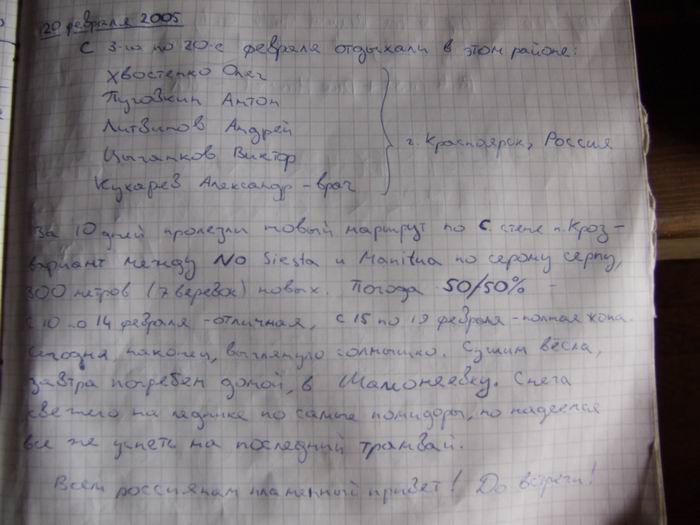 20 февраля 2005
С 3-го по 20-е февраля отдыхали в этом районе:
Хвостенко Олег
Пуговкин Антон
Литвинов Андрей
Цыганков Виктор
Кухарев Александр - врач
г. Красноярск, Россия
За 10 дней пролезли новый маршрут по С стене п. Кроз -
вариант между No Siesta и Manitua по серому серпу,
300 метров (7 веревок) новых. Погода 50/50% -
с 10 по 14 февраля - отличная, с 15 по 19 февраля - полная жопа.
Сегодня наконец, выглянуло солнышко. Сушим весла,
завтра погребем домой, в Шамоняевку. Снега
свежего на леднике по самые помидоры, но надеемся
все же успеть на последний трамвай.
Всем россиянам пламенный привет! До встречи!